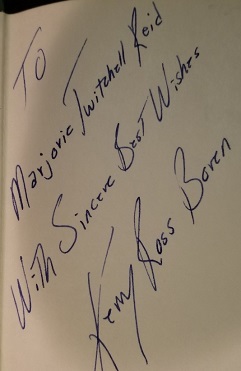 To
Marjorie Twitchell Reid
With Sincere Best Wishes
Kerry Ross Boren